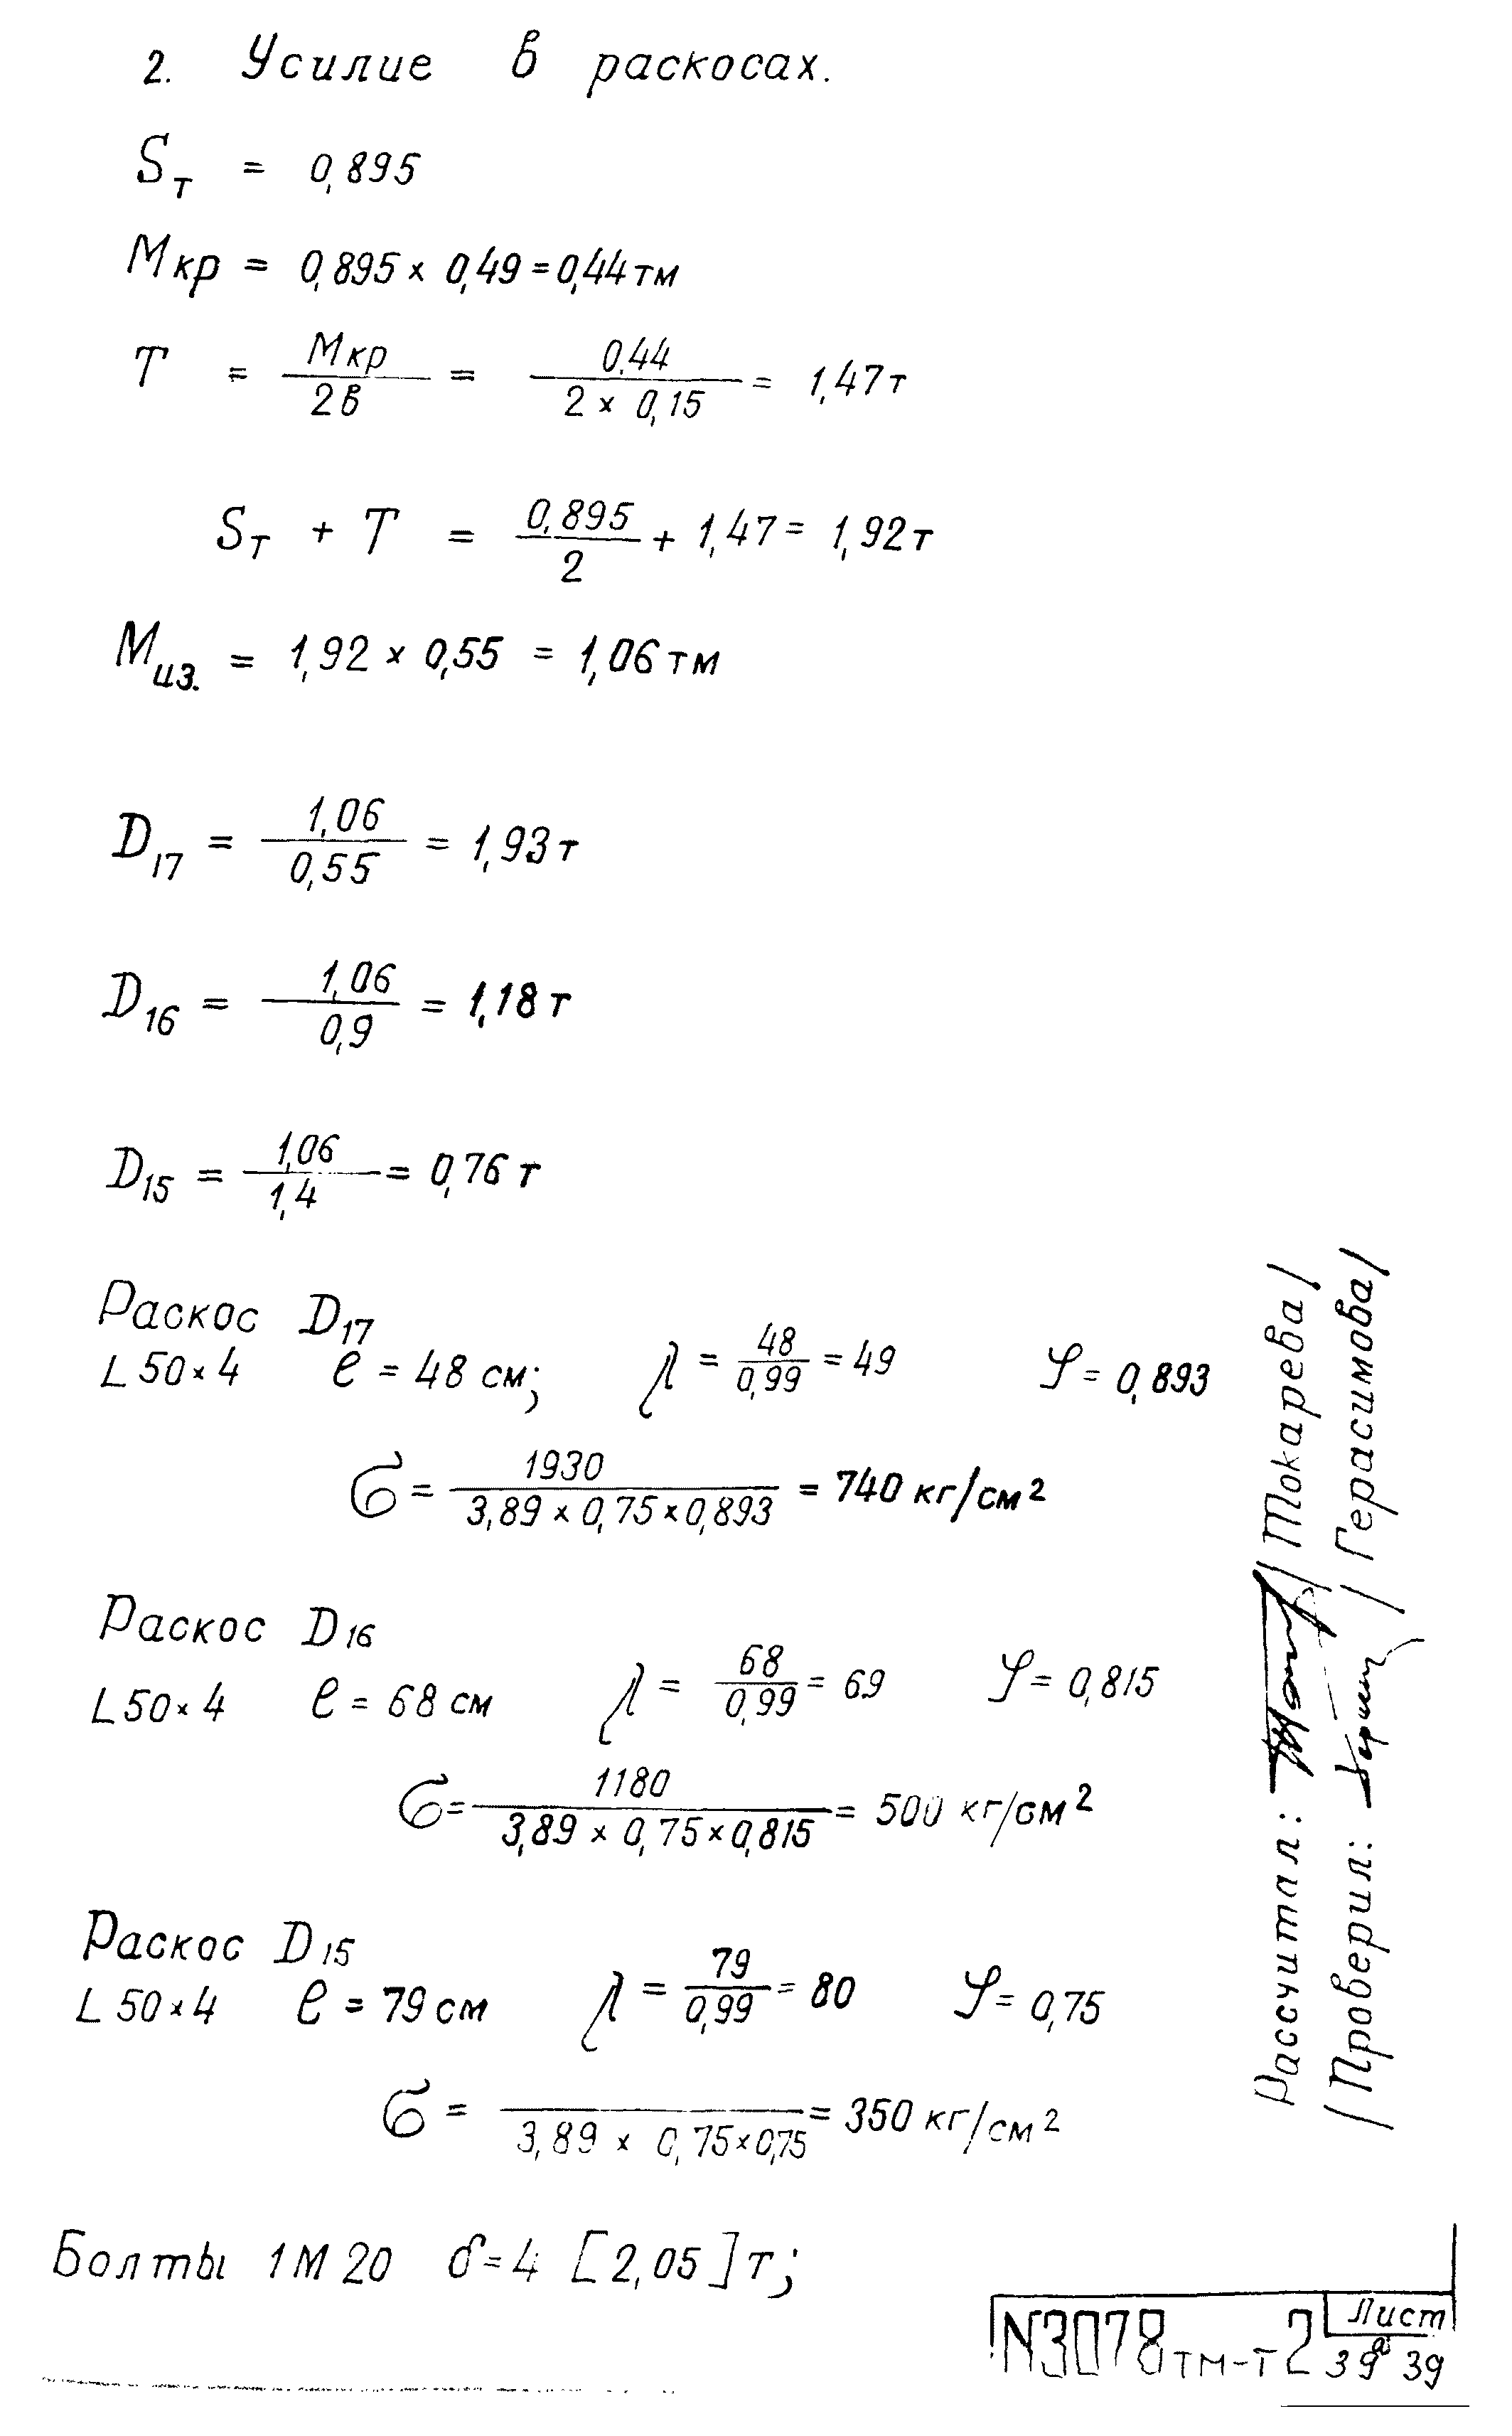 2. Усилие в раскосах.
Sт = 0,895
Мкр = 0,895 × 0,49 = 0,44 тм
T = Мкр / 2в = 0,44 / 2 × 0,15 = 1,47 т
Sт + T = 0,895 / 2 + 1,47 = 1,92 т
Миз. = 1,92 × 0,55 = 1,06 тм
D17 = 1,06 / 0,55 = 1,93 т
D16 = 1,06 / 0,9 = 1,18 т
D15 = 1,06 / 1,4 = 0,76 т
Раскос D17
L 50×4 ℓ = 48 см; λ = 48 / 0,99 = 49 φ = 0,893
σ = 1930 / 3,89 × 0,75 × 0,893 = 740 кг/см²
Раскос D16
L 50×4 ℓ = 68 см λ = 68 / 0,99 = 69 φ = 0,815
σ = 1180 / 3,89 × 0,75 × 0,815 = 500 кг/см²
Раскос D15
L 50×4 ℓ = 79 см λ = 79 / 0,99 = 80 φ = 0,75
σ = / 3,89 × 0,75 × 0,75 = 350 кг/см²
Болты 1М20 δ=4 [2,05] т;
Рассчитал: /Токарева/
/Проверил: /Герасимова/
N3078тм-т2
Лист
39а 39